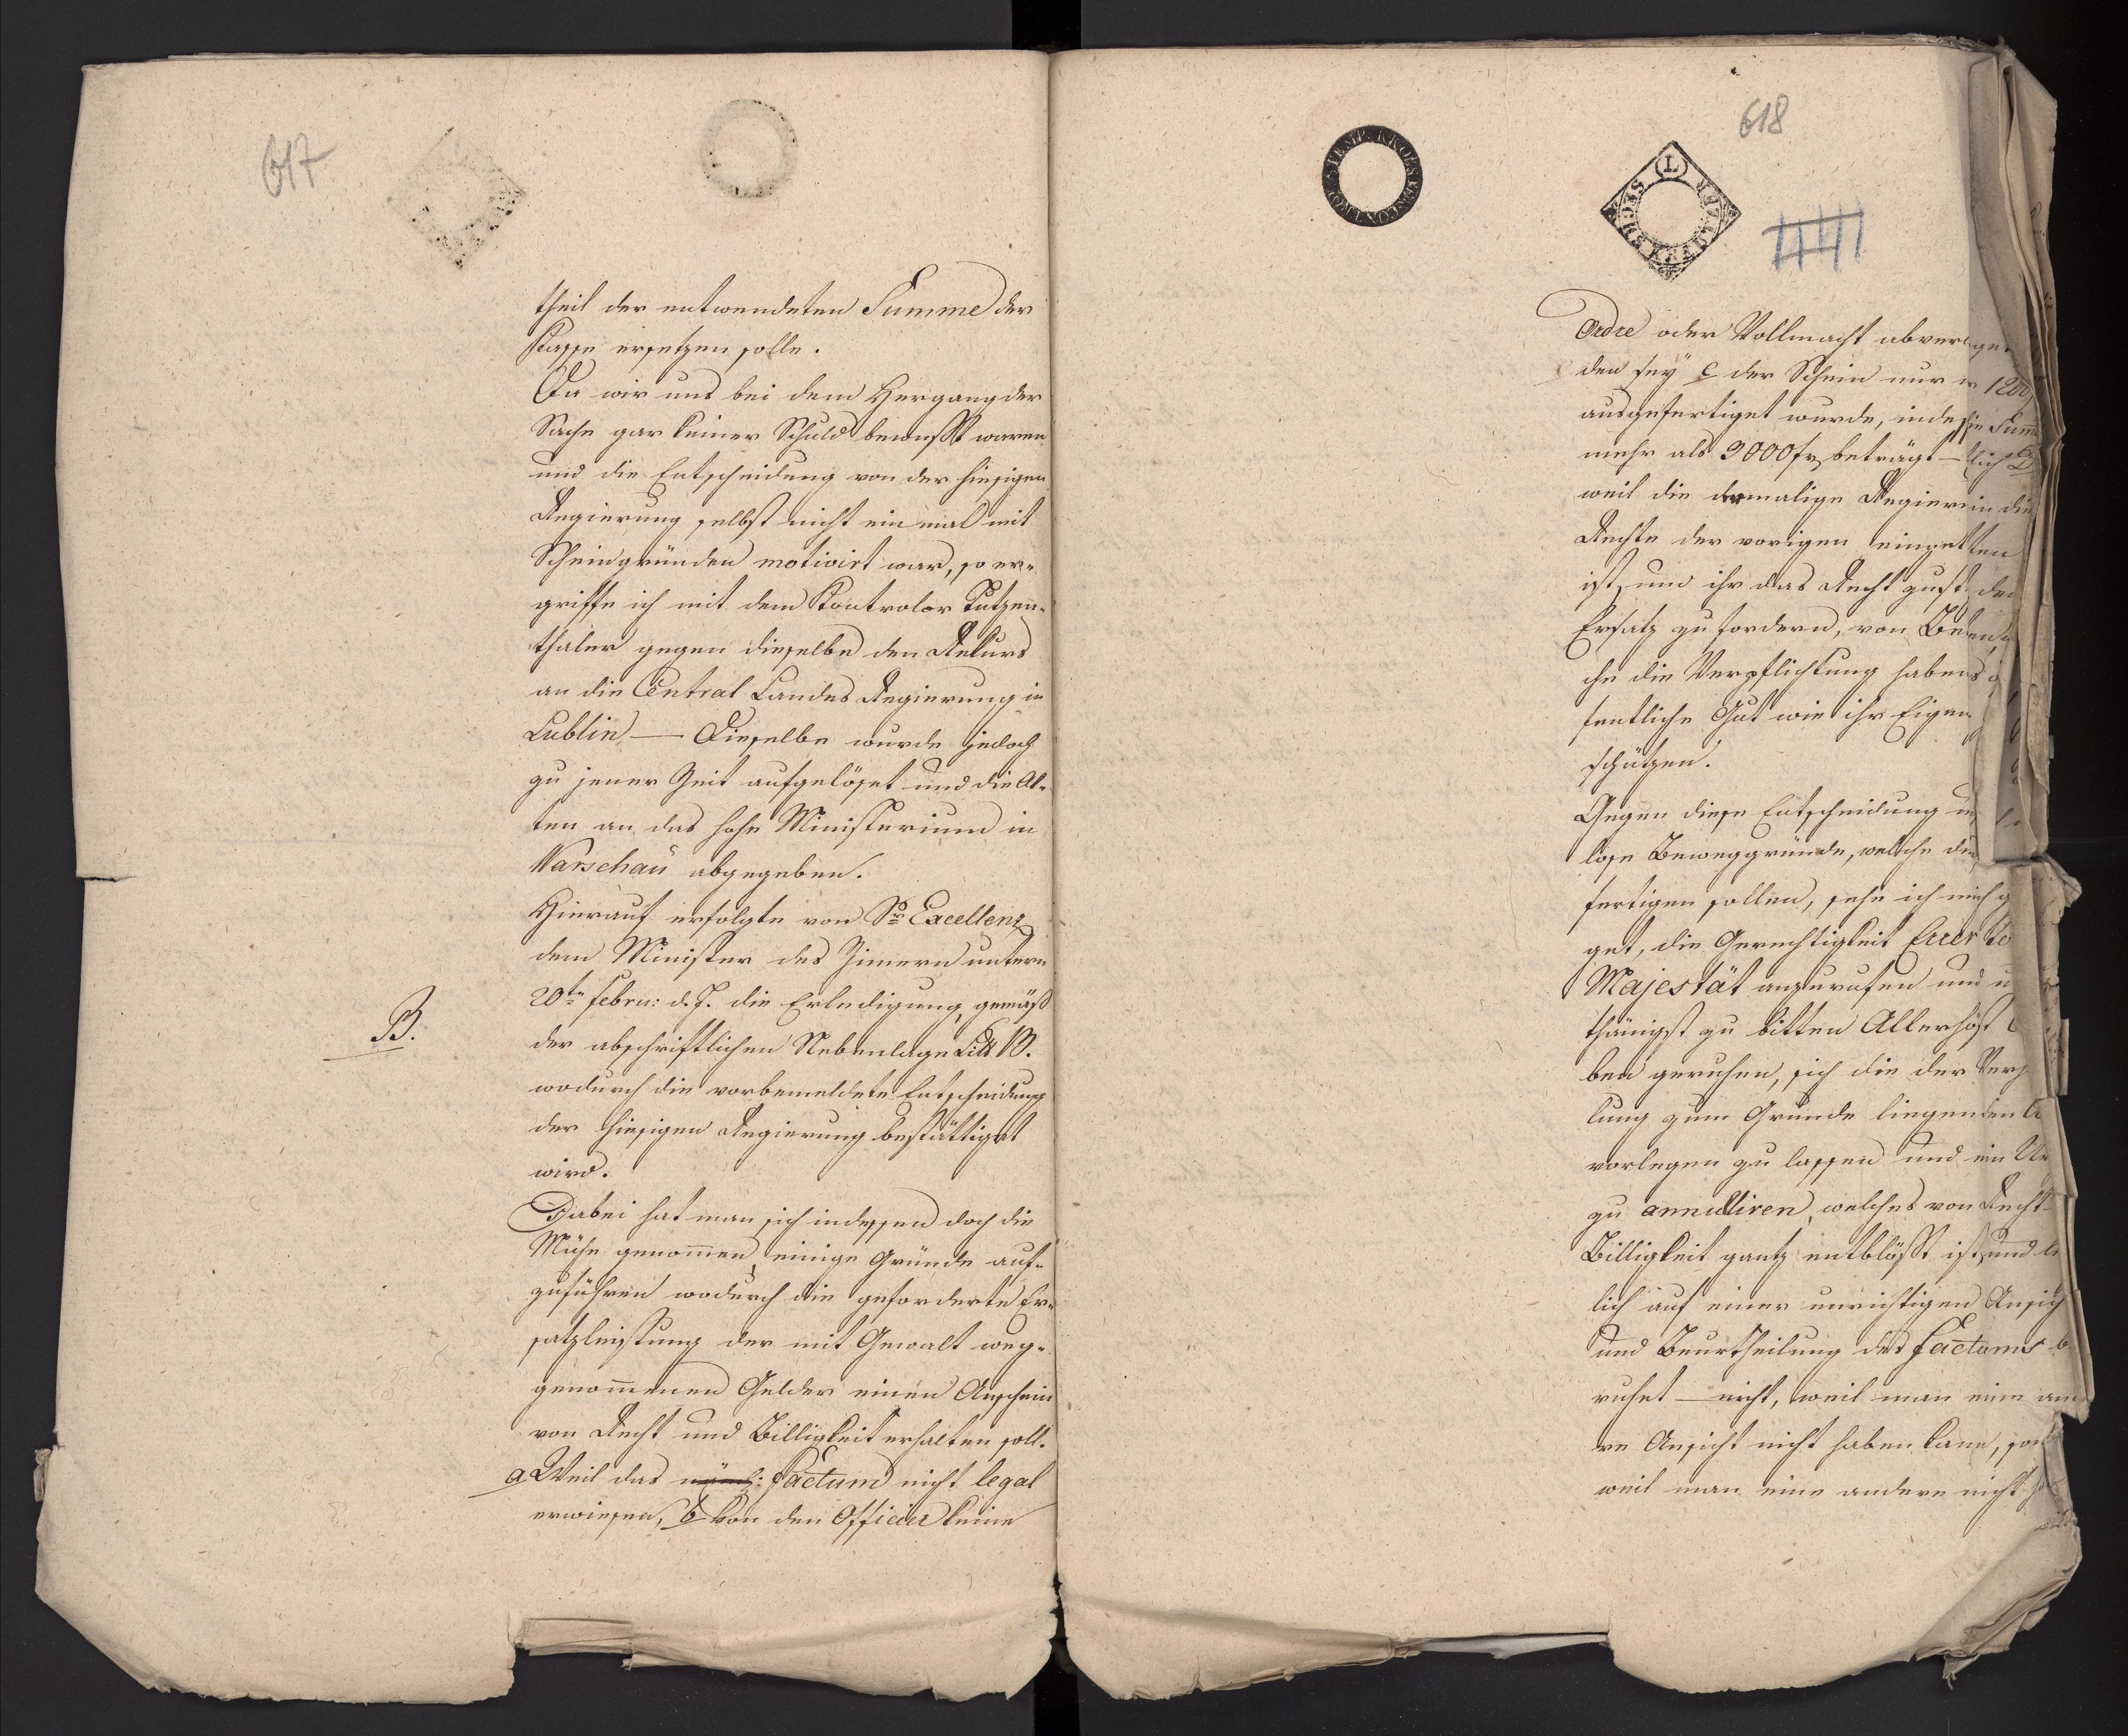 617
theil der entwendeten Summe der
Kasse ersetzen solle.
Da wir uns bei dem Hergang der
Sache gar keiner Schuld bewußt waren
und die Entscheidung von der hiesigen
Regierung selbst nicht ein mal mit
Scheingründen motivirt war, so er-
griffe ich mit dem Kontrolor Lutzen-
thaler gegen dieselbe den Rekurs
an die Central Landes Regierung in
Lublin — Dieselbe wurde jedoch
zu jener Zeit aufgelöset und die Ak-
ten an das hohe Ministerium in
Warschau abgegeben.
Hierauf erfolgte von Sr Excellenz
dem Minister des Innern unterm
20ten Febru: d. J. die Erledigung, gemäß
B.
der abschriftlichen Nebenlage Litt B.
wodurch die vorbemeldete Entscheidung
der hiesigen Regierung bestättiget
wird.
Dabei hat man sich indessen doch die
Mühe genommen, einige Gründe auf-
zuführen wodurch die geforderte Er-
satzleistung der mit Gewalt weg-
genommenen Gelder einen Anschein
von Recht und Billigkeit erhalten soll.
a Weil das Factum nicht legal
erwiesen, b von den Officier keine
618
STEMP
L
Ordre oder Vollmacht
den sey c der Schein nur
ausgefertiget wurde,
mehr als 3000 fr beträgt —
weil die dermalige
Rechte der vorigen
ist, und ihr das Recht
Ersatz zu fordern, von
che die Verpflichtung haben
fentliche Gut wie ihr
schützen.
Gegen diese Entscheidung
lose Beweggründe, welche
fertigen sollen, sehe ich mich
get, die Gerechtigkeit Euer
Majestät anzurufen und
thänigst zu bitten
ben geruhen, sich die der
lung zum Grunde liegenden
vorlegen zu lassen und ein
zu annulliren, welches von Recht
Billigkeit gantz entblößt ist, und
lich auf einer unrichtigen
und Beurtheilung des Factums
ruhet — nicht, weil man eine
re Ansicht nicht haben kann,
weil man eine andere nicht